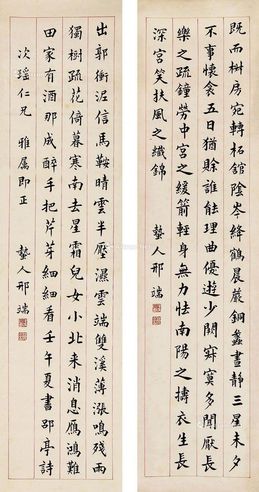 既而椒房宛轉柘館陰岑絳鶴晨嚴銅蠡晝靜三星未夕
不事懷衾五日猶賒誰能理曲優遊少閑寂寞多閒厭長
樂之疏鐘勞中宮之緩箭輕身無力怯南陽之擣衣生長
深宮笑扶風之織錦 蟄人邢端
出郭衝泥信馬鞍晴雲半壓濕雲端雙溪薄漲鳴殘雨
獨樹疏花倚暮寒南去星霜兒女小北來消息雁鴻難
田家有酒那成醉手把芹芽細細看壬午夏書郘亭詩
次瑤仁兄 雅屬即正 蟄人邢端